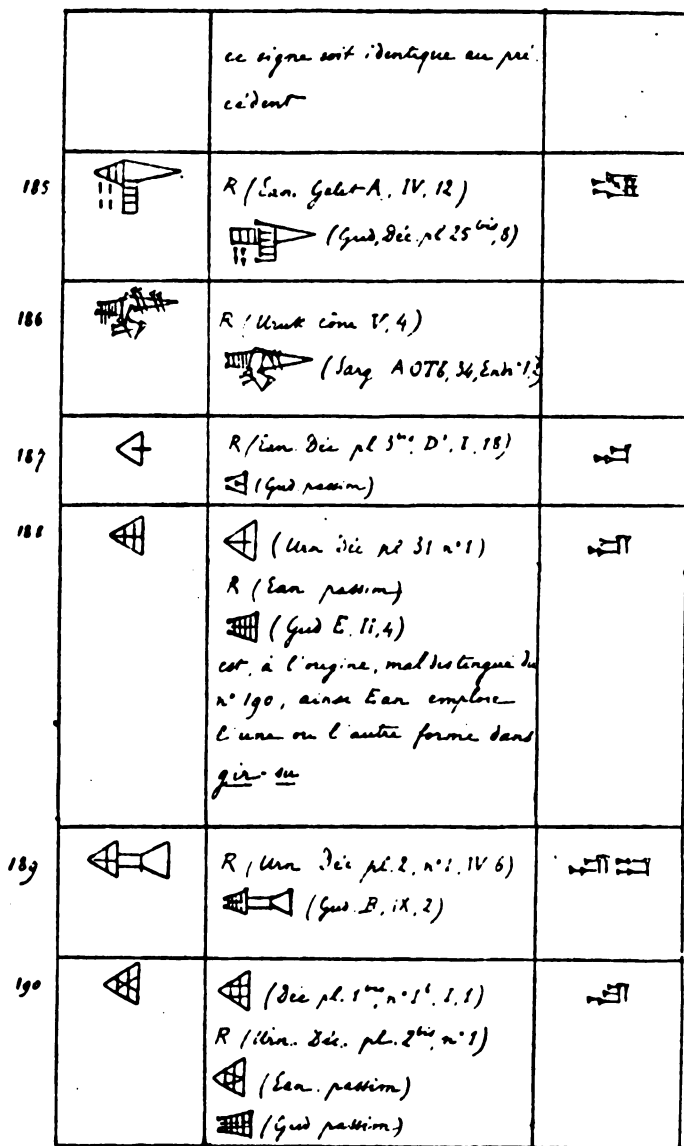 ce signe soit identique au pré
cédent
185
R (Ean. Galet A, IV, 12)
(Gud, Déc. pl 25 bis, 8)
186
R (Uruk cône V, 4)
(Sarg AOTb, 34,
187
R (Ean. Déc pl 3 bis, D', I, 18)
(Gud passim)
188
(Urn Déc pl 31 n° 1)
R (Ean passim)
(Gud E. Ii, 4)
est, à l'origine, mal distingué du
n° 190, ainsi Ean emploie
l'une ou l'autre forme dans
gir-su
189
R (Urn Déc pl. 2, n° 1, IV 6)
(Gud. B, iX, 2)
190
(Déc pl. 1 bis, n° 1 b, I, 1)
R (Urn. Déc. pl. 2 bis, n° 1)
(Ean. passim)
(Gud passim)